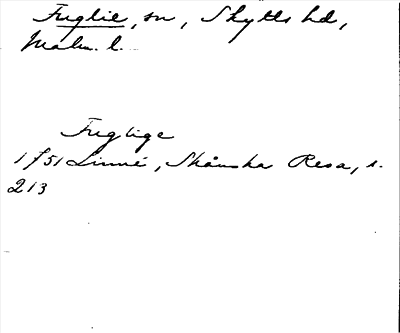 Fuglie, sn, Skytts hd,
Malm. l.
Fuglige
1751 Linné, Skånska Resa, s.
213